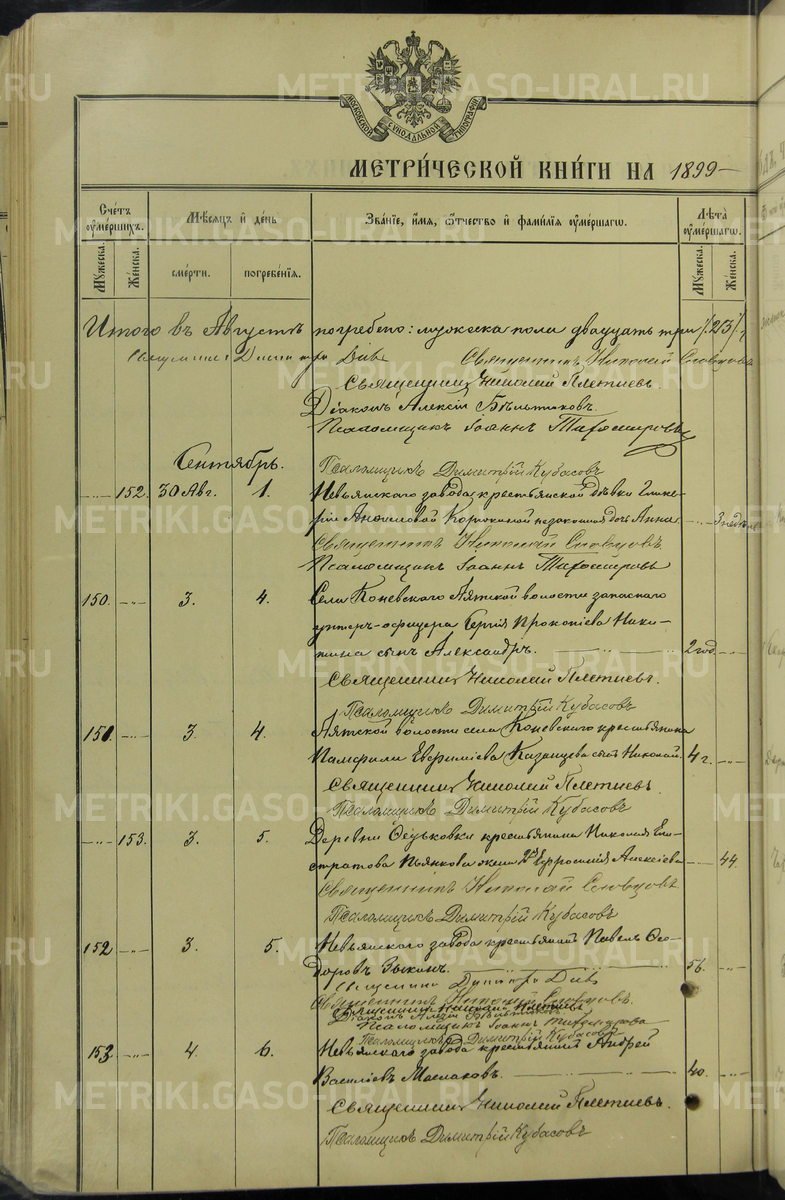 МОСКОВСКОЙ СѴНОДАЛЬНОЙ ТИПОГРАФІИ
МЕТРИ́ЧЕСКОЙ КНИ́ГИ НА 1899
Сче́тъ ᲂу҆ме́ршихъ. Мѣ́сѧцъ и҆ де́нь Зва́нїе, и҆́мѧ, ѻ҆́тчество и҆ фами́лїѧ ᲂу҆ме́ршагѡ. Лѣ́та ᲂу҆ме́ршагѡ.
Мꙋ́жеска. Же́нска. сме́рти. погребе́нїѧ. Мꙋ́жеска. Же́нска.
Итого въ Августѣ погребено: мужеска пола двадцать три /23/
Священникъ Николай Словцовъ
Священникъ Николай Плетневъ.
Діаконъ Алексій Бѣльтиковъ.
Псаломщикъ Іоаннъ Тихомировъ
Сентябрь. Псаломщикъ Димитрій Кубасовъ
152. 30 Авг. 1. Невьянскаго завода крестьянской дѣвки Глике-
ріи Коротиной незаконная дочь Анна. 3 нед.
Священникъ Николай Словцовъ.
Псаломщикъ Іоаннъ Тихомировъ
150. 3. 4. Села Коневскаго Аятской волости запаснаго
унтеръ-офицера Сергія Прокопіева Ники-
тина сынъ Александръ. 2 год.
Священникъ Николай Плетневъ.
Псаломщикъ Димитрій Кубасовъ
151. 3. 4. Аятской волости села Коневскаго крестьянина
Памфила Евфиміева Казанцева сынъ Николай. 4 г.
Священникъ Николай Плетневъ
Псаломщикъ Димитрій Кубасовъ
153. 3. 5. Деревни Оедьковки крестьянина Николая Ели-
стратова Пьянкова жена Евфросинія Алексіева 44.
Священникъ Николай Словцовъ
Псаломщикъ Димитрій Кубасовъ
152 3. 5. Невьянскаго завода крестьянинъ Павелъ Ѳео-
доровъ Зыкинъ. 56.
Священникъ Николай Словцовъ.
Священникъ Николай Плетневъ
Діаконъ Алексій Бѣльтиковъ
Псаломщикъ Іоаннъ Тихомировъ
Псаломщикъ Димитрій Кубасовъ
153 4. 6. Невьянскаго завода крестьянинъ Андрей
Василіевъ Масмаковъ. 40.
Священникъ Николай Плетневъ.
Псаломщикъ Димитрій Кубасовъ
METRIKI.GASO-URAL.RU